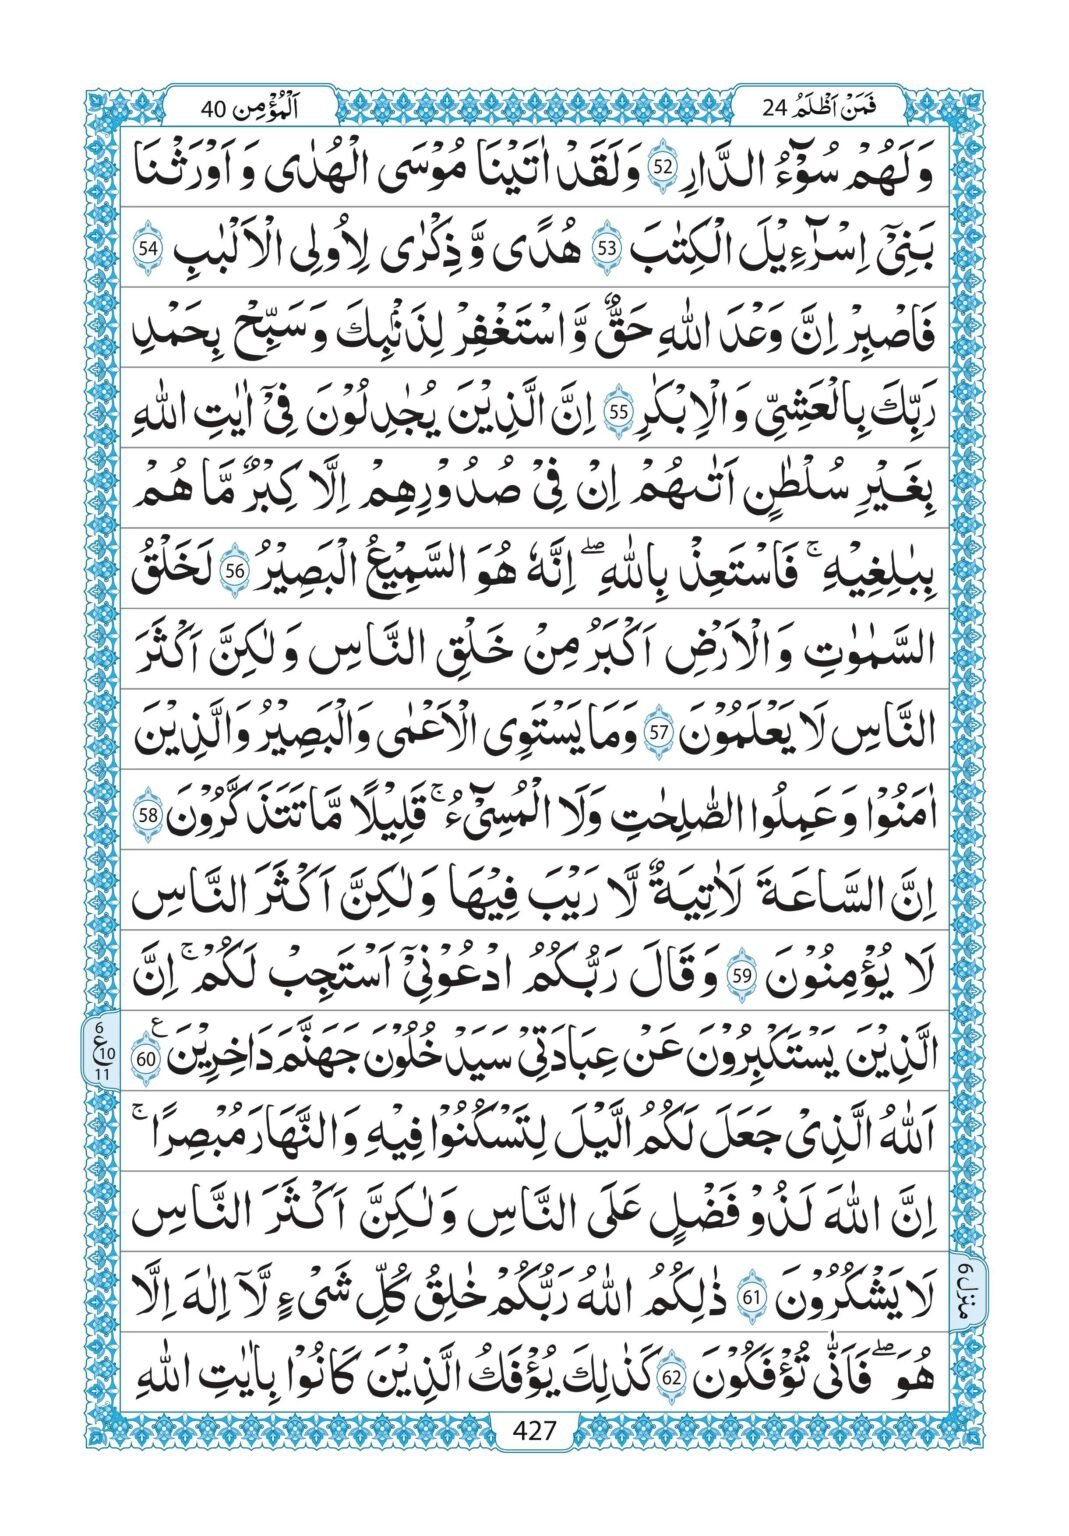 فَمَنْ اَظْلَمُ 24
اَلْمُؤْمِن 40
وَلَهُمْ سُوْٓءُ الدَّارِ 52 وَلَقَدْ اٰتَيْنَا مُوْسَى الْهُدٰى وَ اَوْرَثْنَا
بَنِيْٓ اِسْرَآءِيْلَ الْكِتٰبَ 53 هُدًى وَّ ذِكْرٰى لِاُولِى الْاَلْبٰبِ 54
فَاصْبِرْ اِنَّ وَعْدَ اللّٰهِ حَقٌّ وَّ اسْتَغْفِرْ لِذَنْۢبِكَ وَ سَبِّحْ بِحَمْدِ
رَبِّكَ بِالْعَشِيِّ وَ الْاِبْكَارِ 55 اِنَّ الَّذِيْنَ يُجَادِلُوْنَ فِيْٓ اٰيٰتِ اللّٰهِ
بِغَيْرِ سُلْطٰنٍ اَتٰىهُمْ اِنْ فِيْ صُدُوْرِهِمْ اِلَّا كِبْرٌ مَّا هُمْ
بِبٰلِغِيْهِ ۚ فَاسْتَعِذْ بِاللّٰهِ ۖ اِنَّهٗ هُوَ السَّمِيْعُ الْبَصِيْرُ 56 لَخَلْقُ
السَّمٰوٰتِ وَ الْاَرْضِ اَكْبَرُ مِنْ خَلْقِ النَّاسِ وَ لٰكِنَّ اَكْثَرَ
النَّاسِ لَا يَعْلَمُوْنَ 57 وَمَا يَسْتَوِى الْاَعْمٰى وَالْبَصِيْرُ وَالَّذِيْنَ
اٰمَنُوْا وَ عَمِلُوا الصّٰلِحٰتِ وَلَا الْمُسِيْٓءُ ۚ قَلِيْلًا مَّا تَتَذَكَّرُوْنَ 58
اِنَّ السَّاعَةَ لَاٰتِيَةٌ لَّا رَيْبَ فِيْهَا وَ لٰكِنَّ اَكْثَرَ النَّاسِ
لَا يُؤْمِنُوْنَ 59 وَقَالَ رَبُّكُمُ ادْعُوْنِيْٓ اَسْتَجِبْ لَكُمْ ۚ اِنَّ
الَّذِيْنَ يَسْتَكْبِرُوْنَ عَنْ عِبَادَتِيْ سَيَدْخُلُوْنَ جَهَنَّمَ دَاخِرِيْنَ 60 ع
6
ع 10
11
اَللّٰهُ الَّذِيْ جَعَلَ لَكُمُ الَّيْلَ لِتَسْكُنُوْا فِيْهِ وَ النَّهَارَ مُبْصِرًا ۚ
اِنَّ اللّٰهَ لَذُوْ فَضْلٍ عَلَى النَّاسِ وَ لٰكِنَّ اَكْثَرَ النَّاسِ
لَا يَشْكُرُوْنَ 61 ذٰلِكُمُ اللّٰهُ رَبُّكُمْ خٰلِقُ كُلِّ شَيْءٍ لَّآ اِلٰهَ اِلَّا
منزل 6
هُوَ ۖ فَاَنّٰى تُؤْفَكُوْنَ 62 كَذٰلِكَ يُؤْفَكُ الَّذِيْنَ كَانُوْا بِاٰيٰتِ اللّٰهِ
427